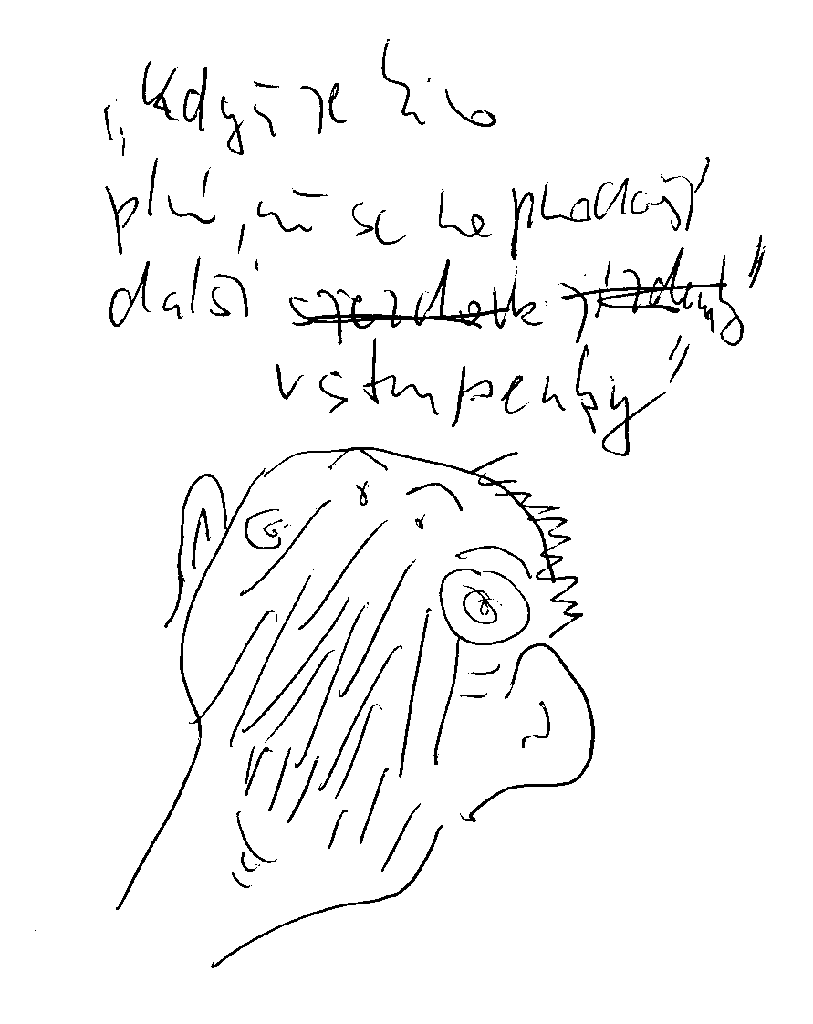 „Když je kino
plné, už se neprodají
další
vstupenky"